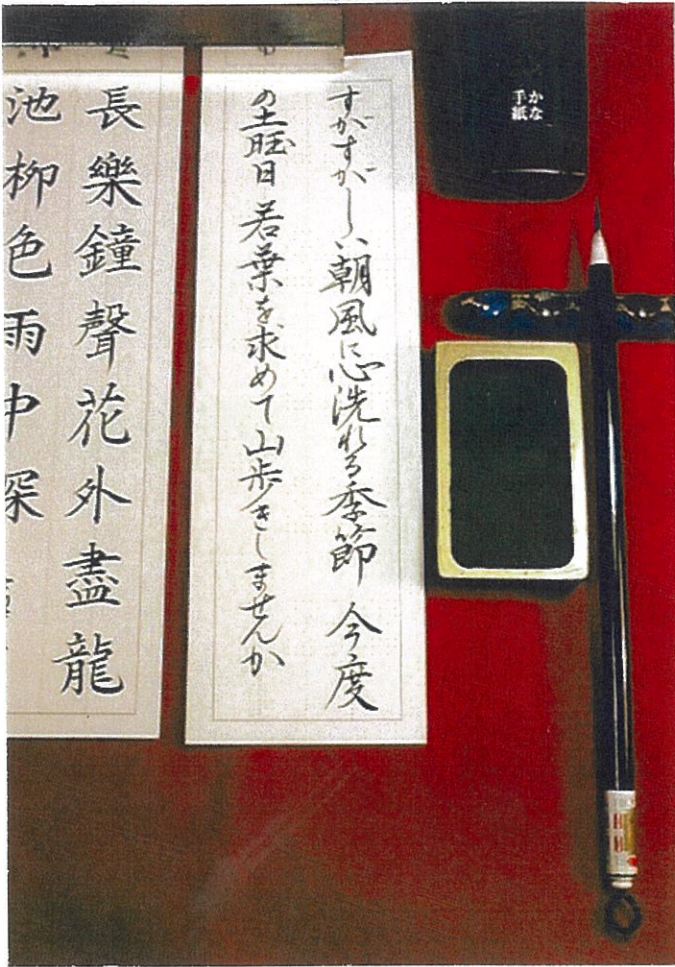 かな
手紙
すがすがしい朝風に心洗れる季節 今度
の土曜日 若葉を求めて山歩きしませんか
長樂鐘聲花外盡龍
池柳色雨中深